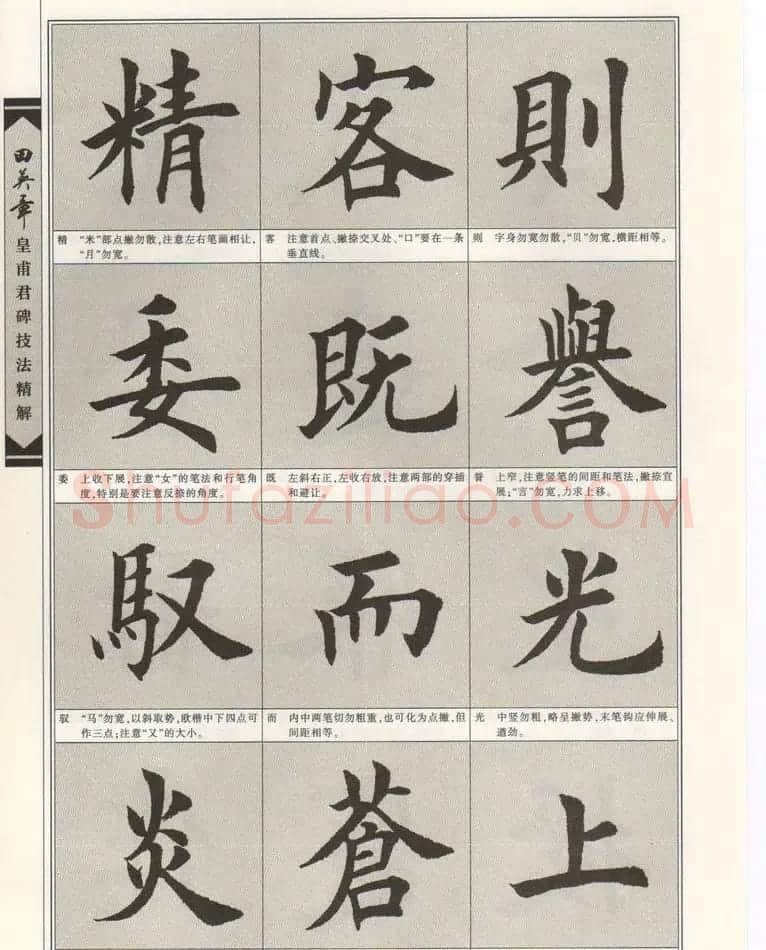 田英章
皇甫君碑技法精解
精 客 則
精 “米”部点撇勿散,注意左右笔画相让,
“月”勿宽。
客 注意首点、撇捺交叉处、“口”要在一条
垂直线。
则 字身勿宽勿散,“贝”勿宽,横距相等。
委 既 譽
委 上收下展,注意“女”的笔法和行笔角
度,特别是要注意反捺的角度。
既 左斜右正,左收右放,注意两部的穿插
和避让。
誉 上窄,注意竖笔的间距和笔法,撇捺宜
展;“言”勿宽,力求上移。
shufaziliao.COM
馭 而 光
驭 “马”勿宽,以斜取势,欧楷中下四点可
作三点;注意“又”的大小。
而 内中两笔切勿粗重,也可化为点撇,但
间距相等。
光 中竖勿粗,略呈撇势,末笔钩应伸展、
遒劲。
炎 蒼 上